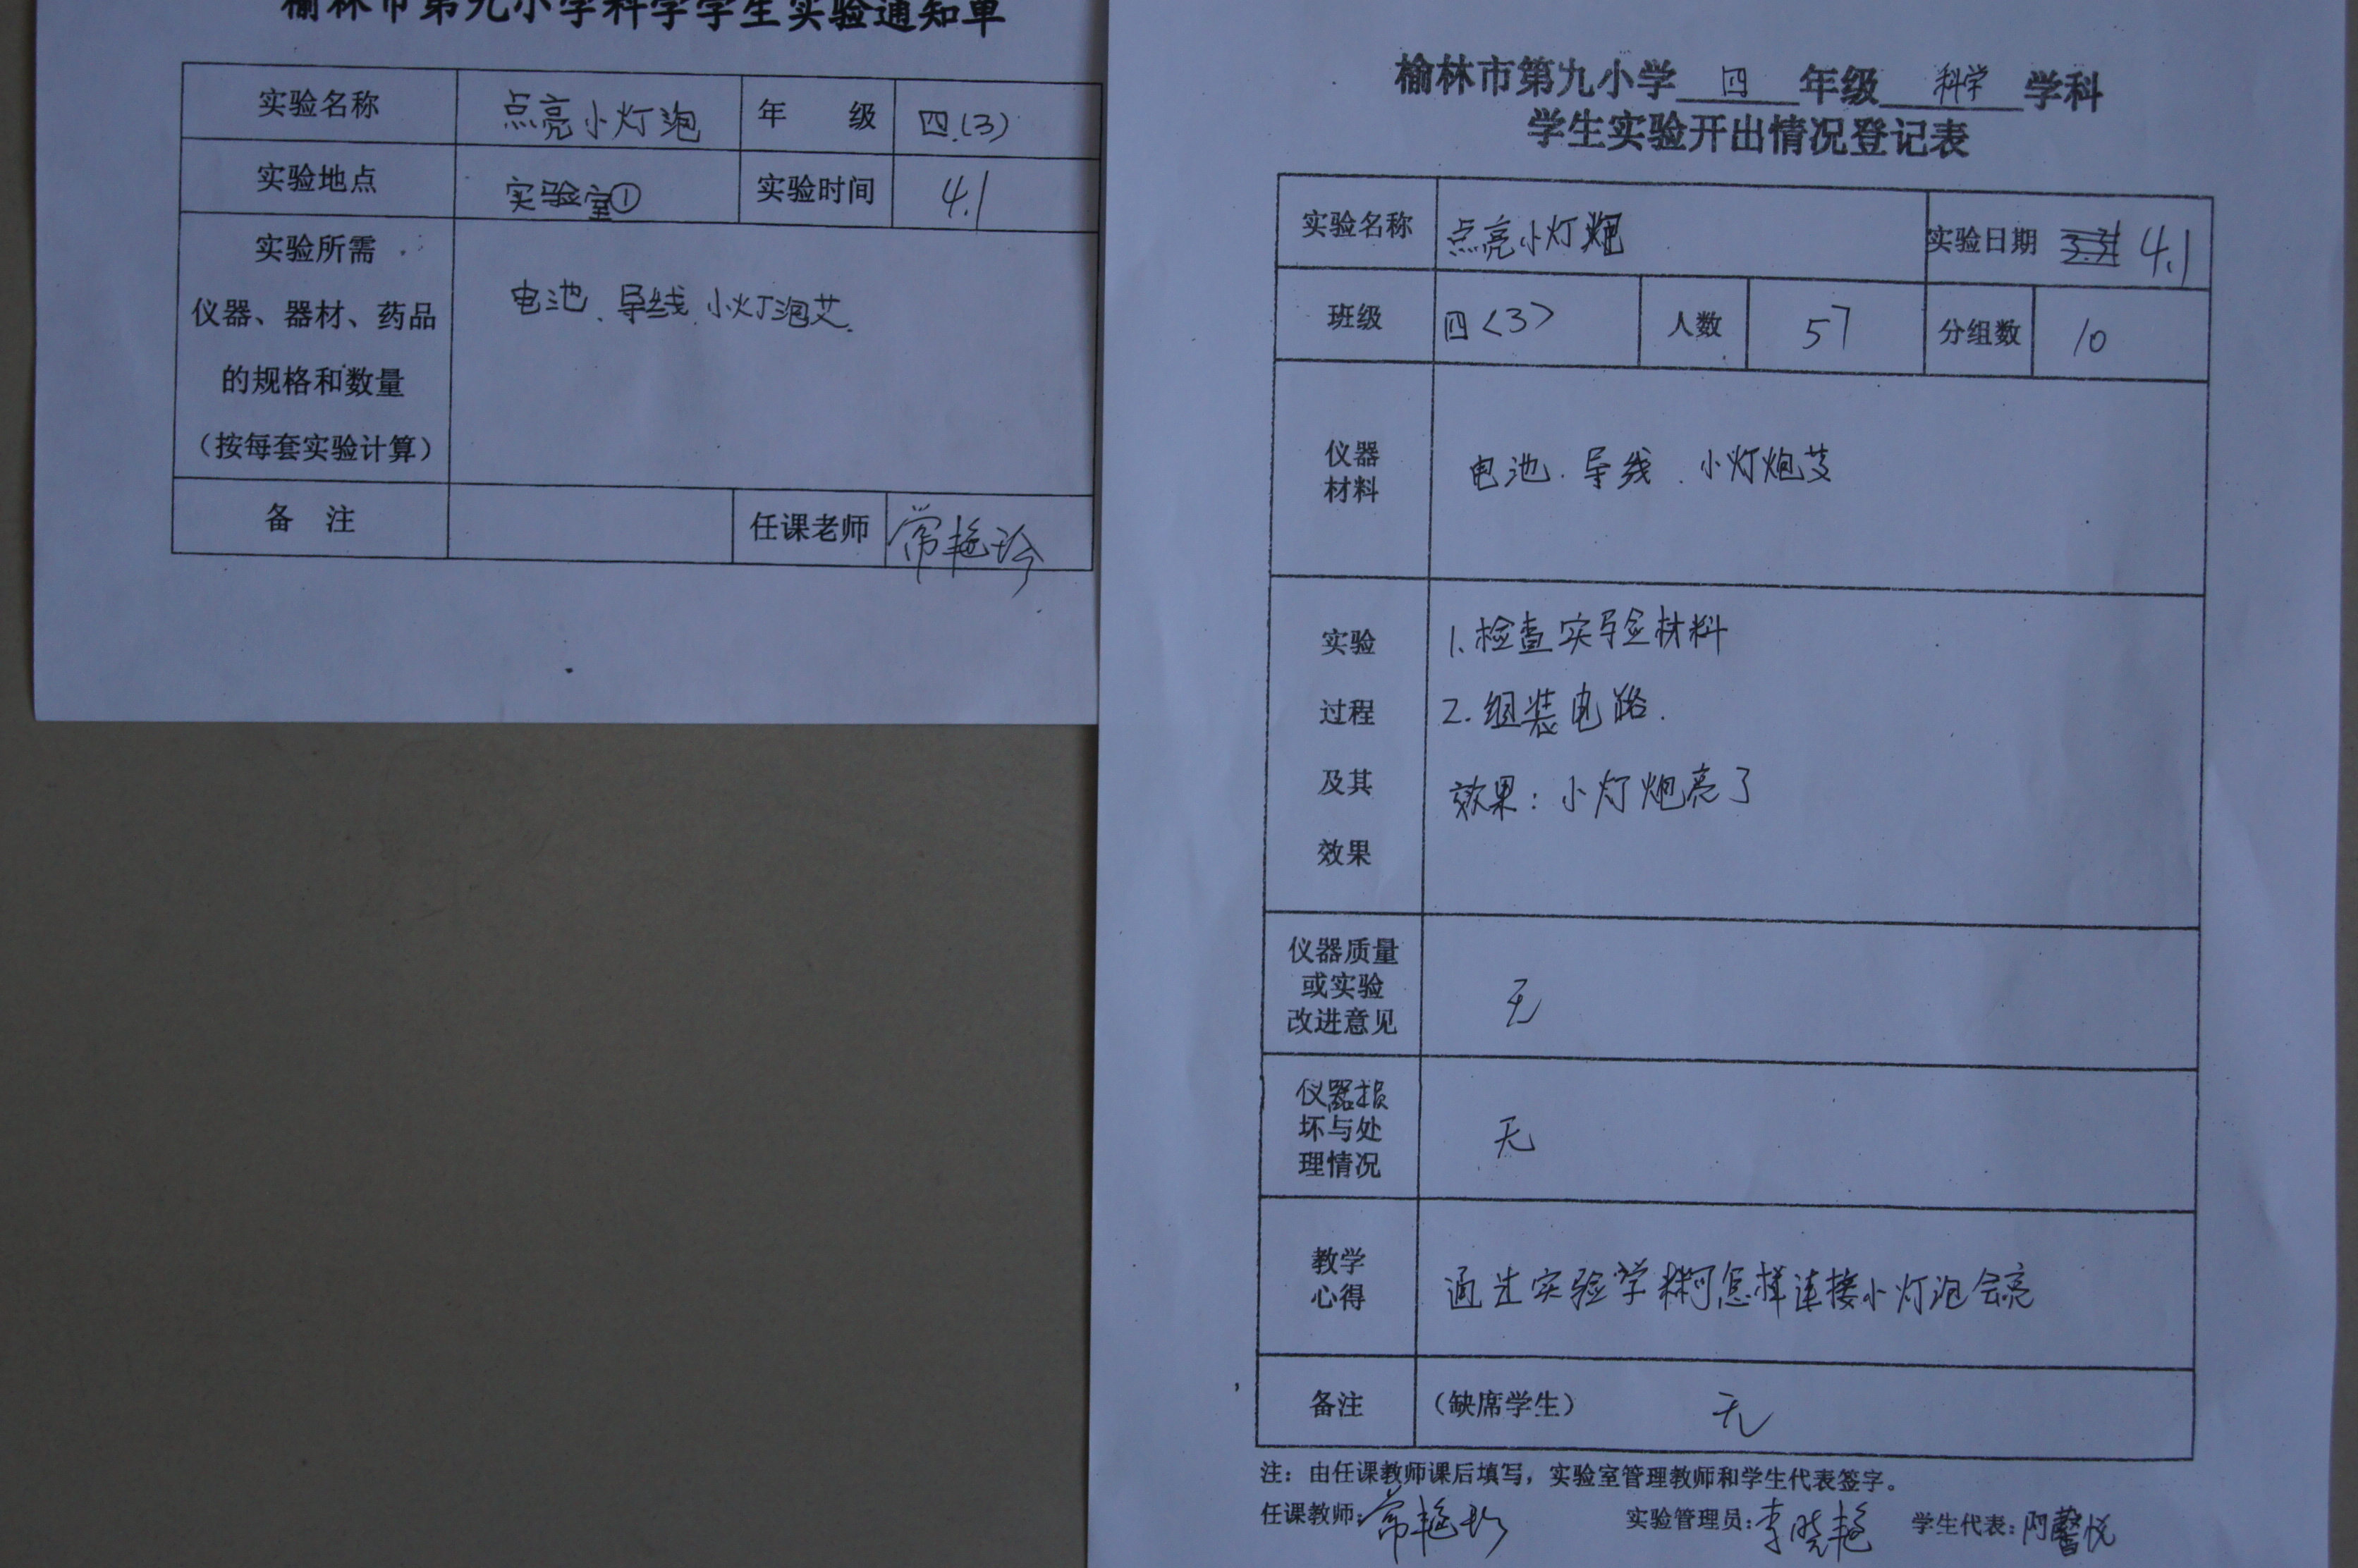 榆林市第九小学科学学生实验通知单
实验名称 点亮小灯泡 年 级 四.(3)
实验地点 实验室① 实验时间 4.1
实验所需
仪器、器材、药品
的规格和数量
（按每套实验计算）
电池、导线、小灯泡艾.
备 注 任课老师 常艳玲
榆林市第九小学 四 年级 科学 学科
学生实验开出情况登记表
实验名称 点亮小灯炮 实验日期 4.1
班级 四〈3〉 人数 57 分组数 10
仪器
材料
电池.导线.小灯炮艾
实验
过程
及其
效果
1.检查实验材料
2.组装电路.
效果：小灯炮亮了
仪器质量
或实验
改进意见
无
仪器损
坏与处
理情况
无
教学
心得
通过实验学 怎样连接小灯泡会亮
备注 （缺席学生） 无
注：由任课教师课后填写，实验室管理教师和学生代表签字。
任课教师：常艳玲 实验管理员：李晓艳 学生代表：